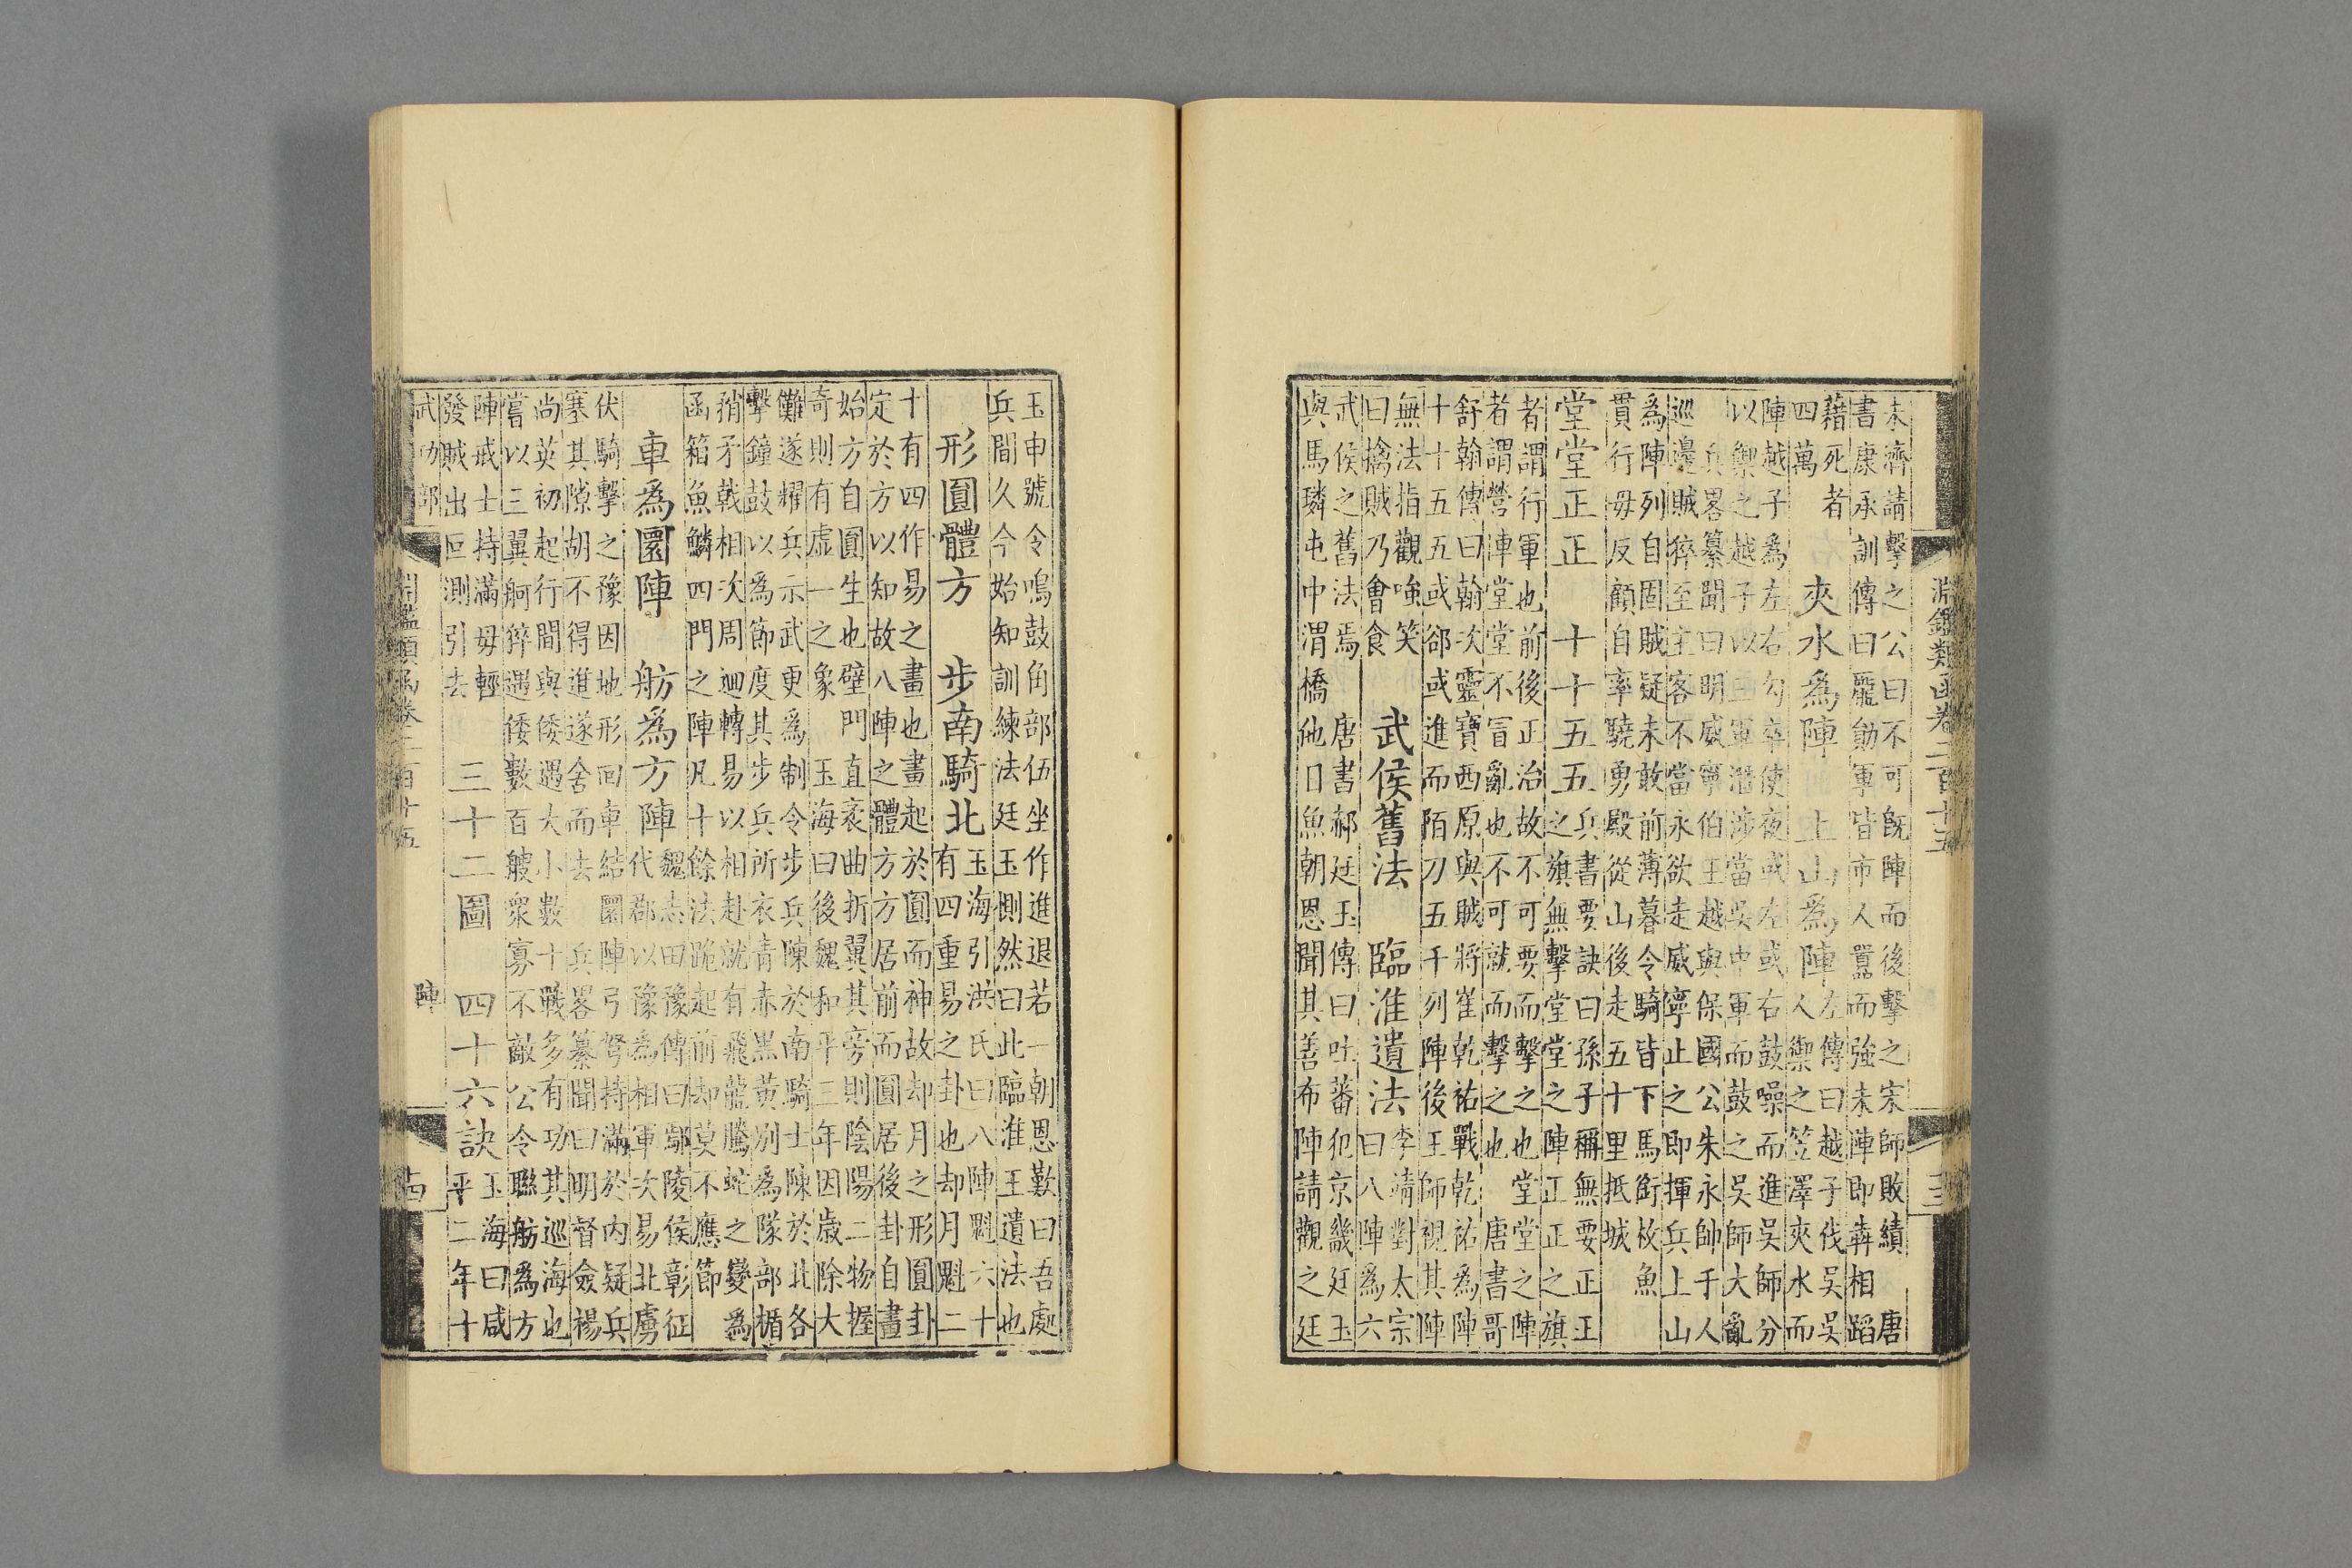 淵鑑類函卷二百十五
十三
未濟請擊之公曰不可既陣而後擊之宋師敗績 唐
書康承訓傳曰龎勛軍皆市人嚚而強未陣即犇相蹈
藉死者
四萬
夾水爲陣 上山爲陣
左傳曰越子伐吳吳
人禦之笠澤夾水而
陣越子爲左右勾卒使夜或左或右鼓噪而進吳師分
以禦之越子以三軍潛涉當吳中軍而鼓之吳師大亂
兵畧纂聞曰明威寧伯王越與保國公朱永帥千人
巡邊賊猝至主客不當永欲走威寧止之即揮兵上山
爲陣列自固賊疑未敢前薄暮令騎皆下馬銜枚魚
貫行毋反顧自率驍勇殿從山後走五十里抵城
堂堂正正 十十五五
兵書要訣曰孫子稱無要正正
之旗無擊堂堂之陣正正之旗
者謂行軍也前後正治故不可要而擊之也堂堂之陣
者謂營陣堂堂不冒亂也不可就而擊之也 唐書哥
舒翰傳曰翰次靈寶西原與賊將崔乾祐戰乾祐爲陣
十十五五或郤或進而陌刀五千列陣後王師視其陣
無法指觀嗤笑
曰擒賊乃會食
武侯舊法 臨淮遺法
李靖對太宗
曰八陣爲六
武侯之舊法焉 唐書郝廷玉傳曰吐蕃犯京畿廷玉
與馬璘屯中渭橋他日魚朝恩聞其善布陣請觀之廷
玉申號令鳴鼓角部伍坐作進退若一朝恩歎曰吾處
兵間久今始知訓練法廷玉惻然曰此臨淮王遺法也
形圓體方 步南騎北
玉海引洪氏曰八陣魁六十
有四重易之卦也却月魁二
十有四作易之畫也畫起於圓而神故却月之形圓卦
定於方以知故八陣之體方方居前而圓居後卦自畫
始方自圓生也壁門直袤曲折翼其旁則陰陽二物握
奇則有虛一之象 玉海曰後魏和平三年因歲除大
儺遂耀兵示武更爲制令步兵陳於南騎士陳於北各
擊鐘鼓以爲節度其步兵所衣青赤黑黃別爲隊部楯
矟矛戟相次周迴轉易以相赴就有飛龍騰蛇之變爲
函箱魚鱗四門之陣凡十餘法跪起前却莫不應節
車爲圜陣 舫爲方陣
魏志田豫傳曰鄢陵侯彰征
代郡以豫爲相軍次易北虜
伏騎擊之豫因地形回車結圜陣弓弩持滿於內疑兵
塞其隙胡不得進遂舍而去 兵畧纂聞曰明督僉褟
尚英初起行間與倭遇大小數十戰多有功其巡海也
嘗以三翼舸猝遇倭數百艘衆寡不敵公令聯舫爲方
陣戒士持滿毋輕
發賊出叵測引去
三十二圖 四十六訣
玉海曰咸
平二年十
武功部
淵鑑類函卷二百十五
陣
十四